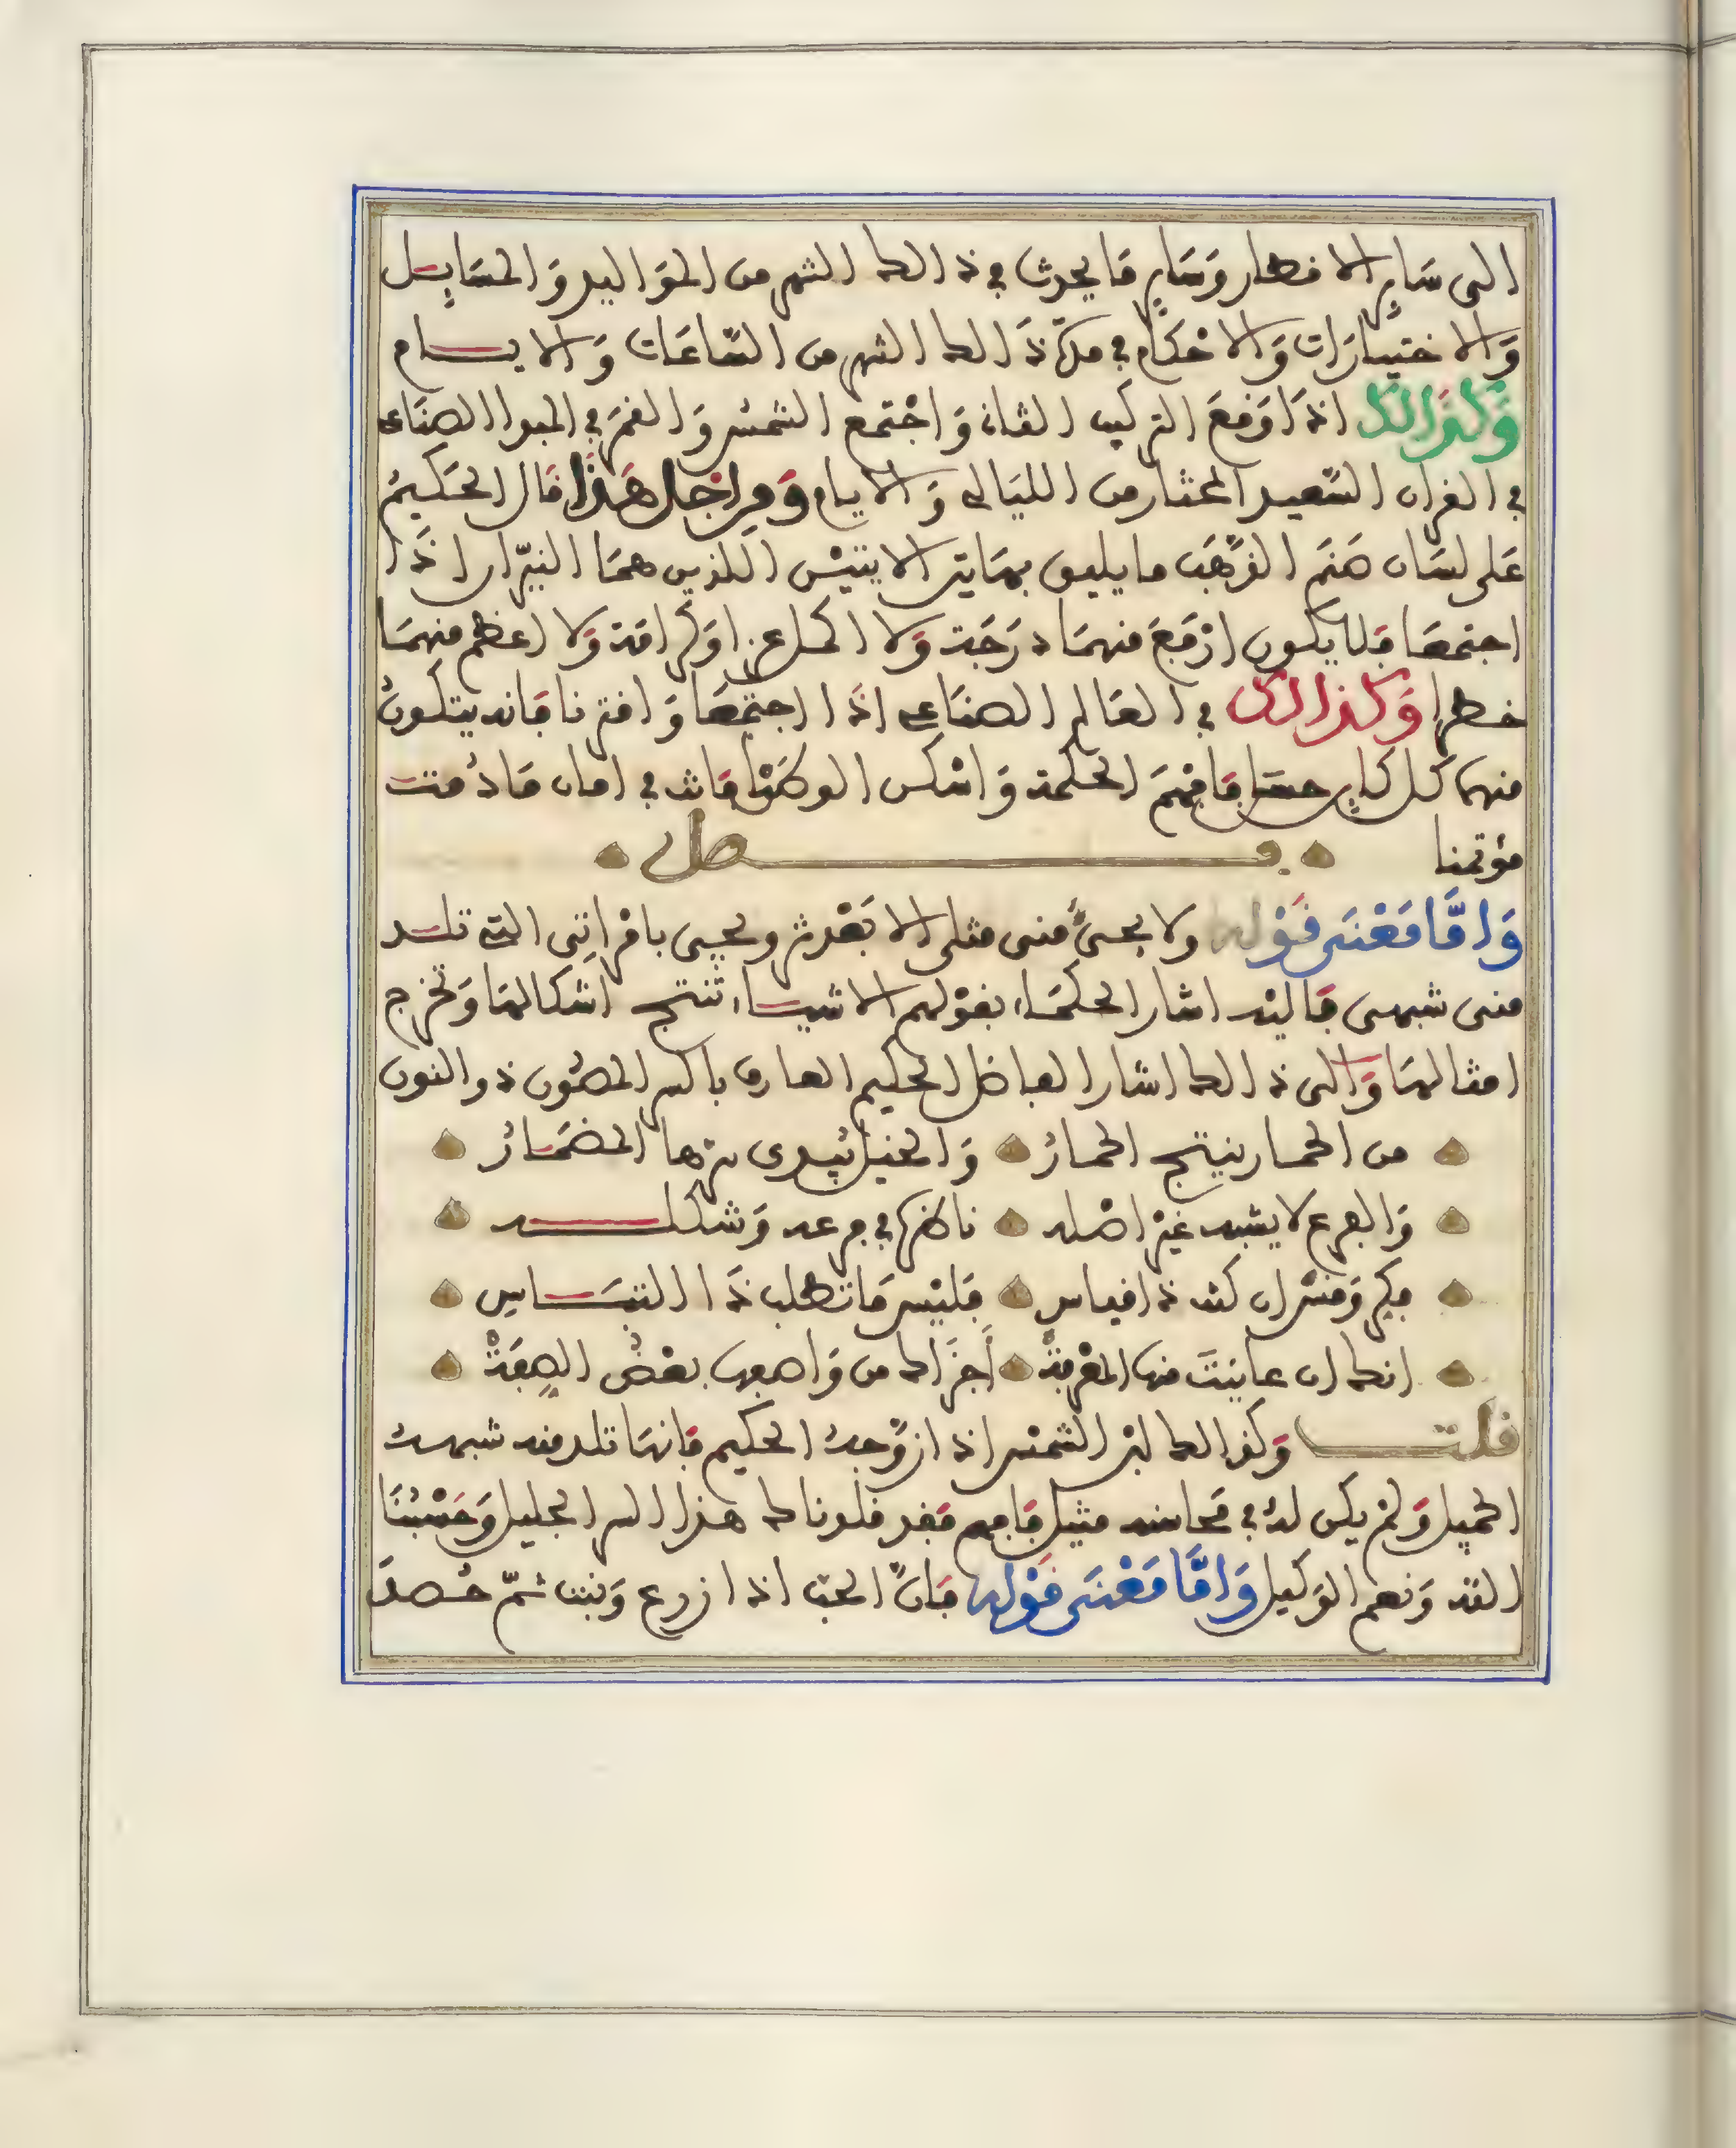 الى ساير الاقطار وَسَاير مَا يحدث في ذالك الشهر من المَوَاليد وَالمسَايِل
وَالاختيَارَات وَالاحْكَام في مدّة ذَالك الشهر من السّاعَات وَالايام
وَكذَالك اذَا وَقعَ التركيب الثانى وَاجْتمع الشمْس وَالقمَر في الجو الصنَاعى
في القران السّعيد المختار من الليَالى وَالايام وَمِن اجل هَذَا قال الحَكيمُ
عَلى لسَان صَنَم الذهَب ما يليق بهَاتين الاثنيْن اللذين همَا النيّران اذَا
اجتمعَا فلا يكون ارْفعَ منهمَا درَجَة وَلا اكمل عزا وَكرامَة وَلا اعظم منهمَا
خطرا وَكذالك في العَالم الصنَاعى اذَا اجتمَعَا وَاقترنا فَانه يتكونُ
منهما كل كاين حسَن فَافهَم الحكمة وَاشكر الوَهّاب في امان مَا دُمت
مؤتمنا فصل
وَامَّا مَعْنَى قوْله ولا يجىءُ منى مثلى الا بَعْدى ويجيى بامْراتى التى تلد
منى شبهى فَاليْه اشار الحكمَاء بقوْلهم الاشياء تنتج اشكالهَا وَتخرج
امثالهَا وَالى ذالك اشار الفاضل الحكيم العارف بالسر المصُون ذو النون
من الحمار ينتج الحمارُ وَالخيْل يُبدى سرّها المضمَارُ
وَالفرع لا يشبه غيْر اصْله ناظرا في فرعه وَشكله
ففكر وَفسّر ان كنت ذا قياس فليْس مَا تطلب ذَا التبَاس
انك ان عايَنتَ منها المعْرفةْ أجْزَاك من وَاصفها بعْضُ الصِفَةْ
قلت وَكذالك ابْن الشمْس اذا ازوَجهُ الحكيم فانهَا تلد منه شبههُ
الجميل وَلمْ يكن لهُ في محَاسنه مثيل فَافهم فقد قلونا لك هذا السر الجليل وَحَسْبُنَا
الله وَنعم الوَكيل وَامَّا مَعْنَى قوْله فَانّ الحبّ اذا زرع وَنبت ثمّ حُصدَ